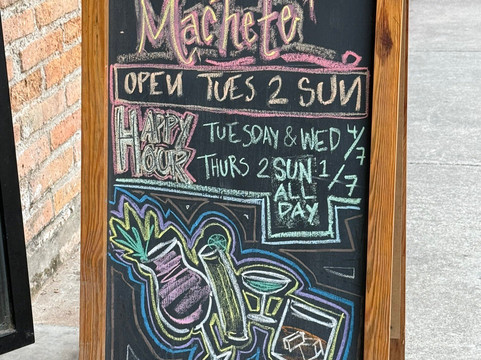 Machete
OPEN TUES 2 SUN
HAPPY
HOUR
TUESDAY & WED 4/7
THURS 2 SUN 1/7
ALL
DAY